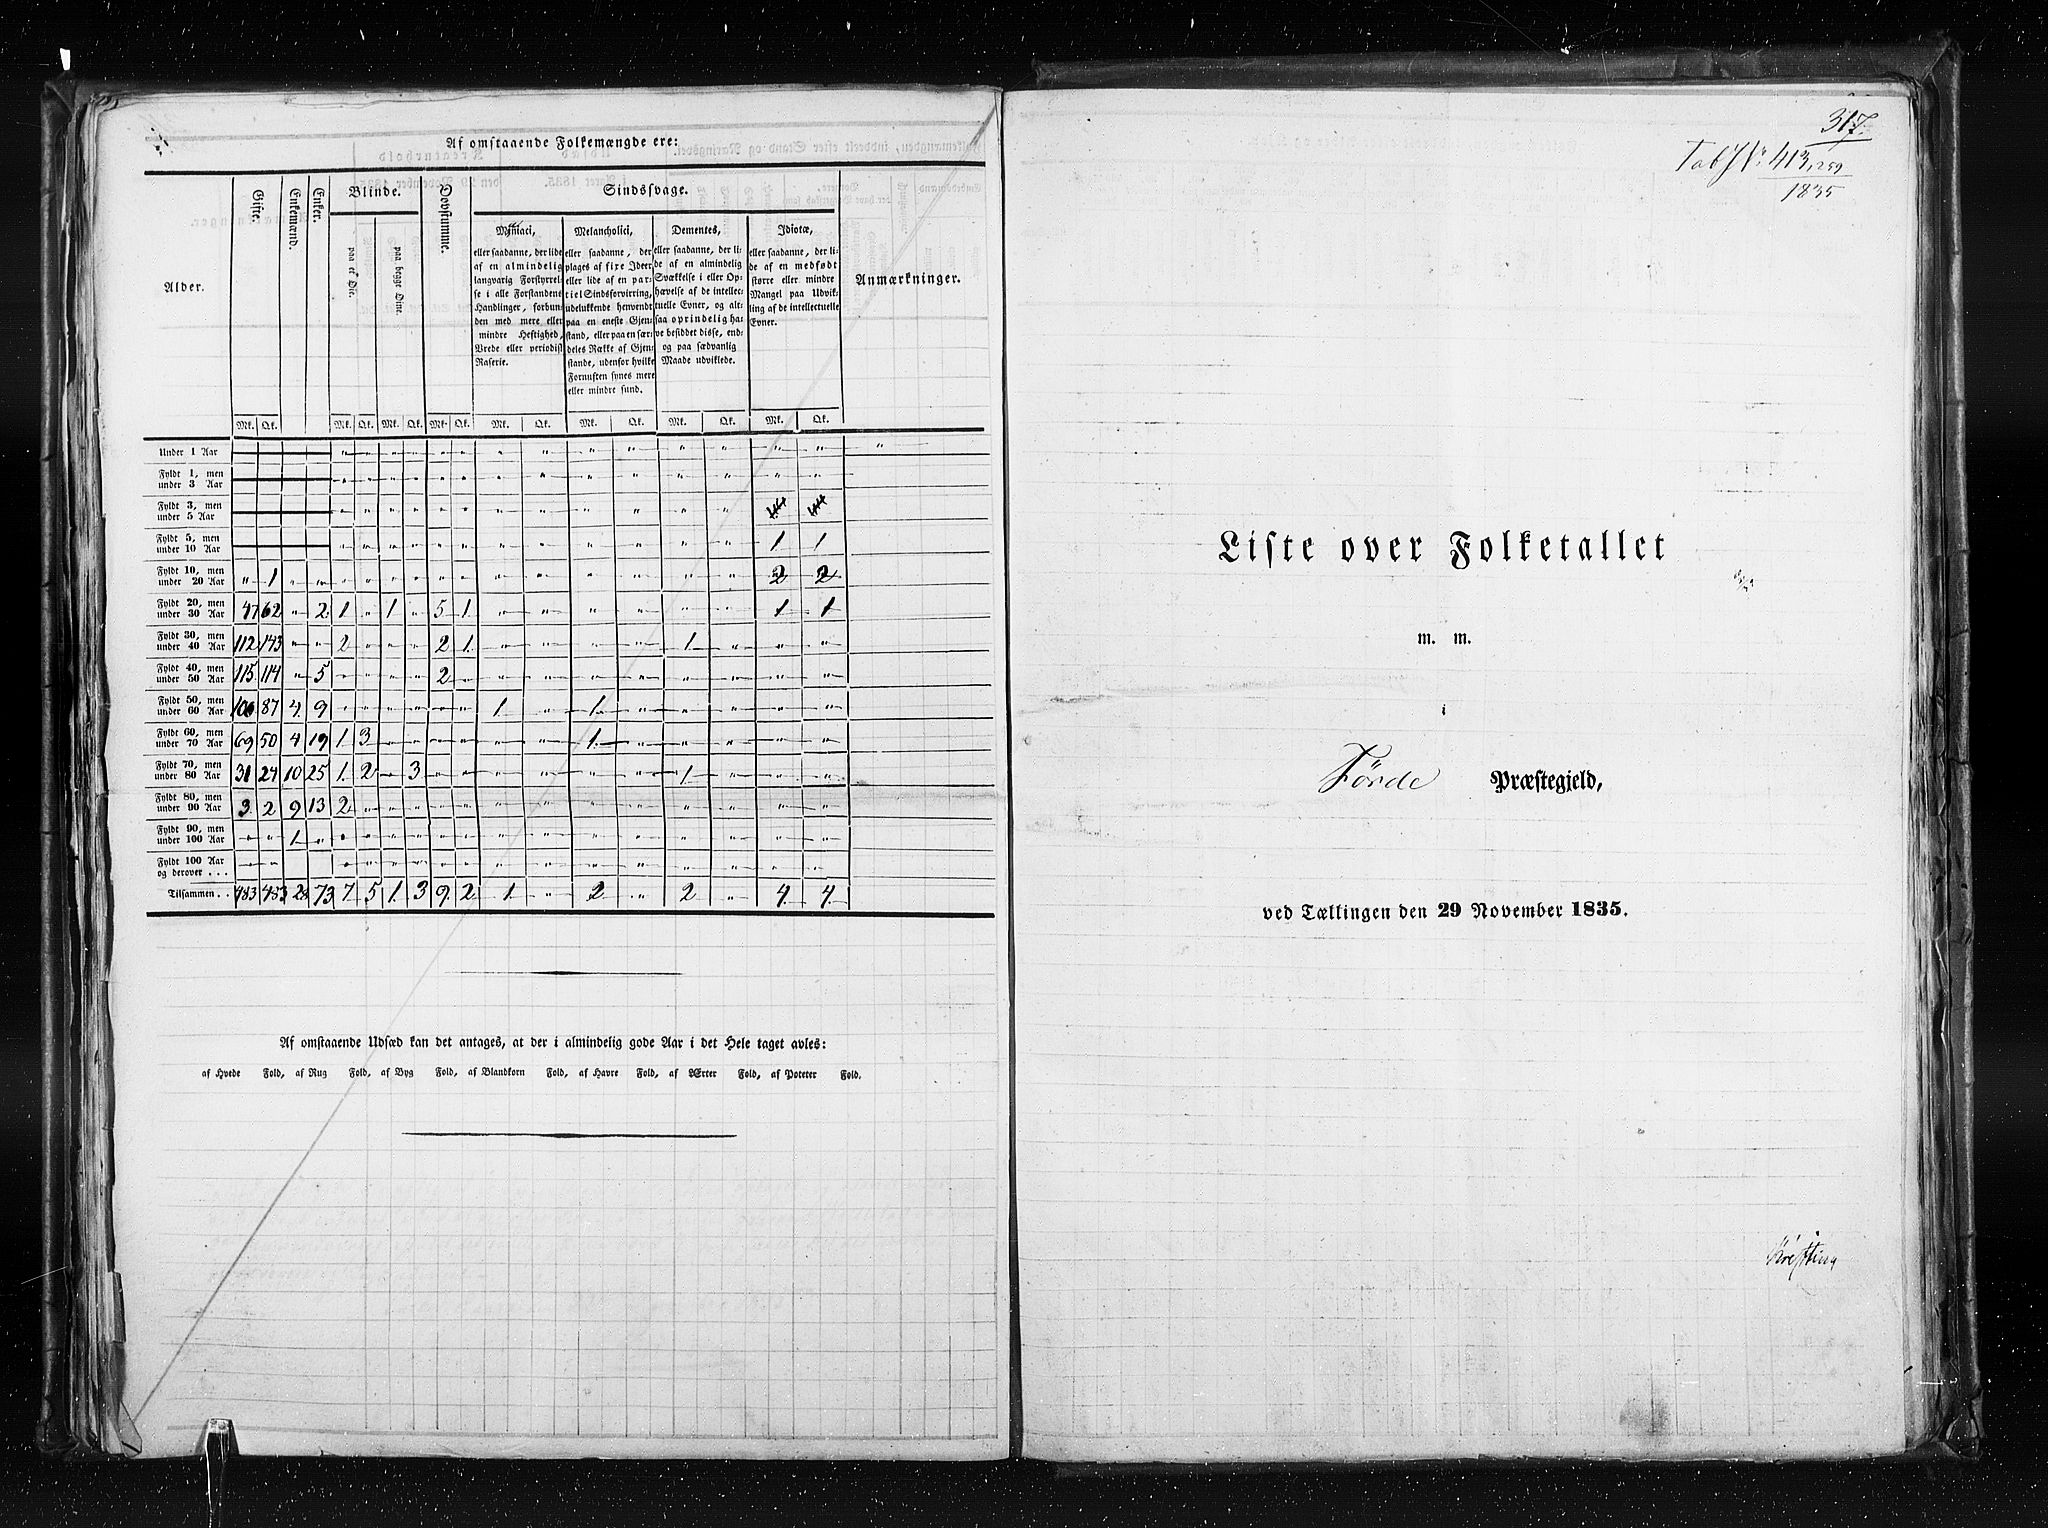 Af omstaaende Folkemængde ere:
Alder.
Gifte.
Enkemænd.
Enker.
Blinde.
paa et Øie.
paa begge Øine.
Døvstumme.
Sindssvage.
Maniaci,
eller saadanne, der lide
af en almindelig
langvarig Forstyrrel-
se i alle Forstandens
Handlinger, forbun-
den med mere eller
mindre Heftighed,
Vrede eller periodisk
Raserie.
Melancholici,
eller saadanne, der
plages af fixe Ideer
eller lide af en par-
tiel Sindsforvirring,
udelukkende henvendt
paa en eneste Gjen-
stand, eller paa en sær-
deles Række af Gjen-
stande, udenfor hvilke
Fornuften synes mere
eller mindre sund.
Dementes,
eller saadanne, der li-
de af en almindelig
Svækkelse i eller Op-
hævelse af de intellec-
tuelle Evner, og alt-
saa oprindelig ha-
ve besiddet disse, end-
og paa sædvanlig
Maade udviklede.
Idiotæ,
eller saadanne, der li-
de af en medfødt
større eller mindre
Mangel paa Udvik-
ling af de intellectuelle
Evner.
Anmærkninger.
Mk. Qk. Mk. Qk. Mk. Qk. Mk. Qk. Mk. Qk. Mk. Qk. Mk. Qk. Mk. Qk.
Under 1 Aar " " " " " " " " " " " " " " "
Fyldt 1, men
under 3 Aar " " " " " " " " " " " " " "
Fyldt 3, men
under 5 Aar " " " " " " " " " " " "
Fyldt 5, men
under 10 Aar " " " " " " " " " " " " 1 1
Fyldt 10, men
under 20 Aar " 1 " " " " " " " " " " " " " " 2 2
Fyldt 20, men
under 30 Aar 47 62 " 2 1 " 1 " 5 1 " " " " " " 1 1
Fyldt 30, men
under 40 Aar 112 143 " " 2 " " " 2 1 " " " " 1 " " "
Fyldt 40, men
under 50 Aar 115 114 " 5 " " " " 2 " " " " " " " " "
Fyldt 50, men
under 60 Aar 106 87 4 9 " " " " " " 1 " 1 " " " " "
Fyldt 60, men
under 70 Aar 69 50 4 19 1 3 " " " " " " 1 " " " " "
Fyldt 70, men
under 80 Aar 31 24 10 25 1 2 " 3 " " " " " " 1 " " "
Fyldt 80, men
under 90 Aar 3 2 9 13 2 " " " " " " " " " " " " "
Fyldt 90, men
under 100 Aar " " 1 " " " " " " " " " " " " " " "
Fyldt 100 Aar
og derover . . . " " " " " " " " " " " " " " " "
Tilsammen . . 483 483 28 73 7 5 1 3 9 2 1 " 2 " 2 " 4 4
Af omstaaende Udsæd kan det antages, at der i almindelig gode Aar i det Hele taget avles:
af Hvede Fold, af Rug Fold, af Byg Fold, af Blandkorn Fold, af Havre Fold, af Ærter Fold, af Poteter Fold.
317.
Tab J No 413, 259
1835
Liste over Folketallet
m. m.
i
Førde Præstegjeld,
ved Tællingen den 29 November 1835.